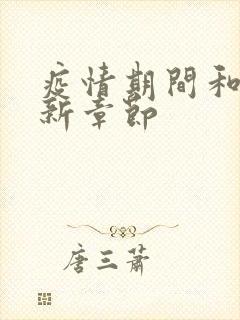 疫情期間和
新章節
唐三蕭